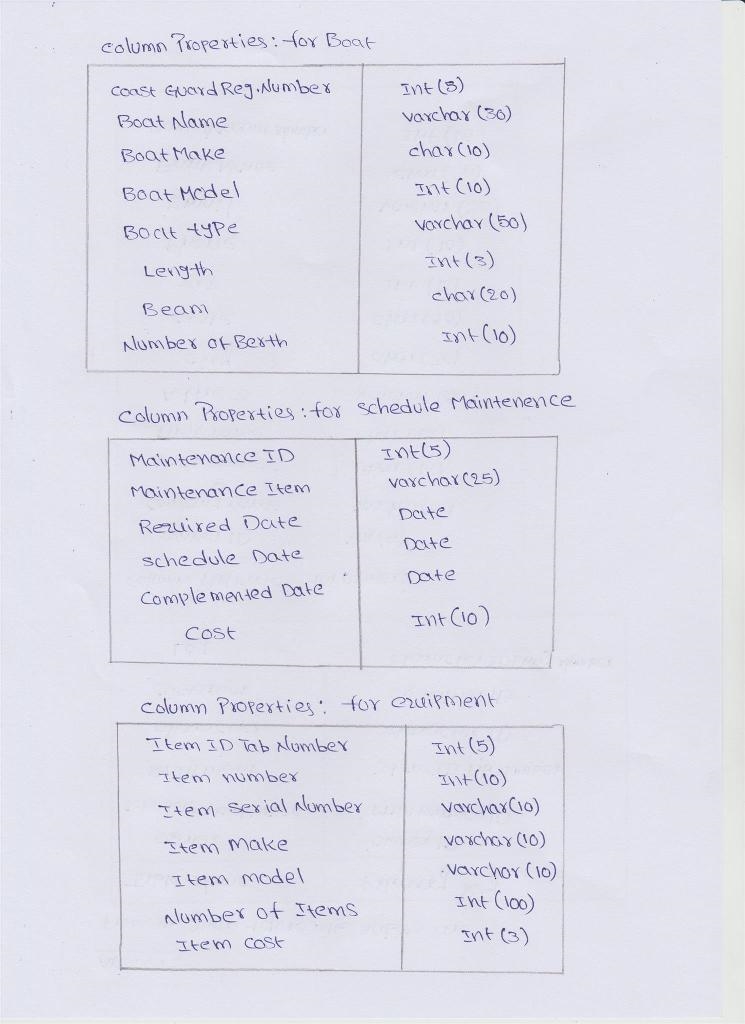 Column Properties: for Boat
Coast Guard Reg.Number Int(5)
Boat Name varchar(30)
Boat Make char(10)
Boat Model Int(10)
Boat type varchar(50)
Length Int(3)
Beam char(20)
Number of Berth Int(10)
Column Properties: for schedule Maintenence
Maintenance ID Int(5)
Maintenance Item varchar(25)
Required Date Date
schedule Date Date
Complemented Date Date
Cost Int(10)
Column Properties: for equipment
Item ID Tab Number Int(5)
Item number Int(10)
Item serial Number varchar(10)
Item Make varchar(10)
Item model varchar(10)
Number of Items Int(100)
Item cost Int(3)